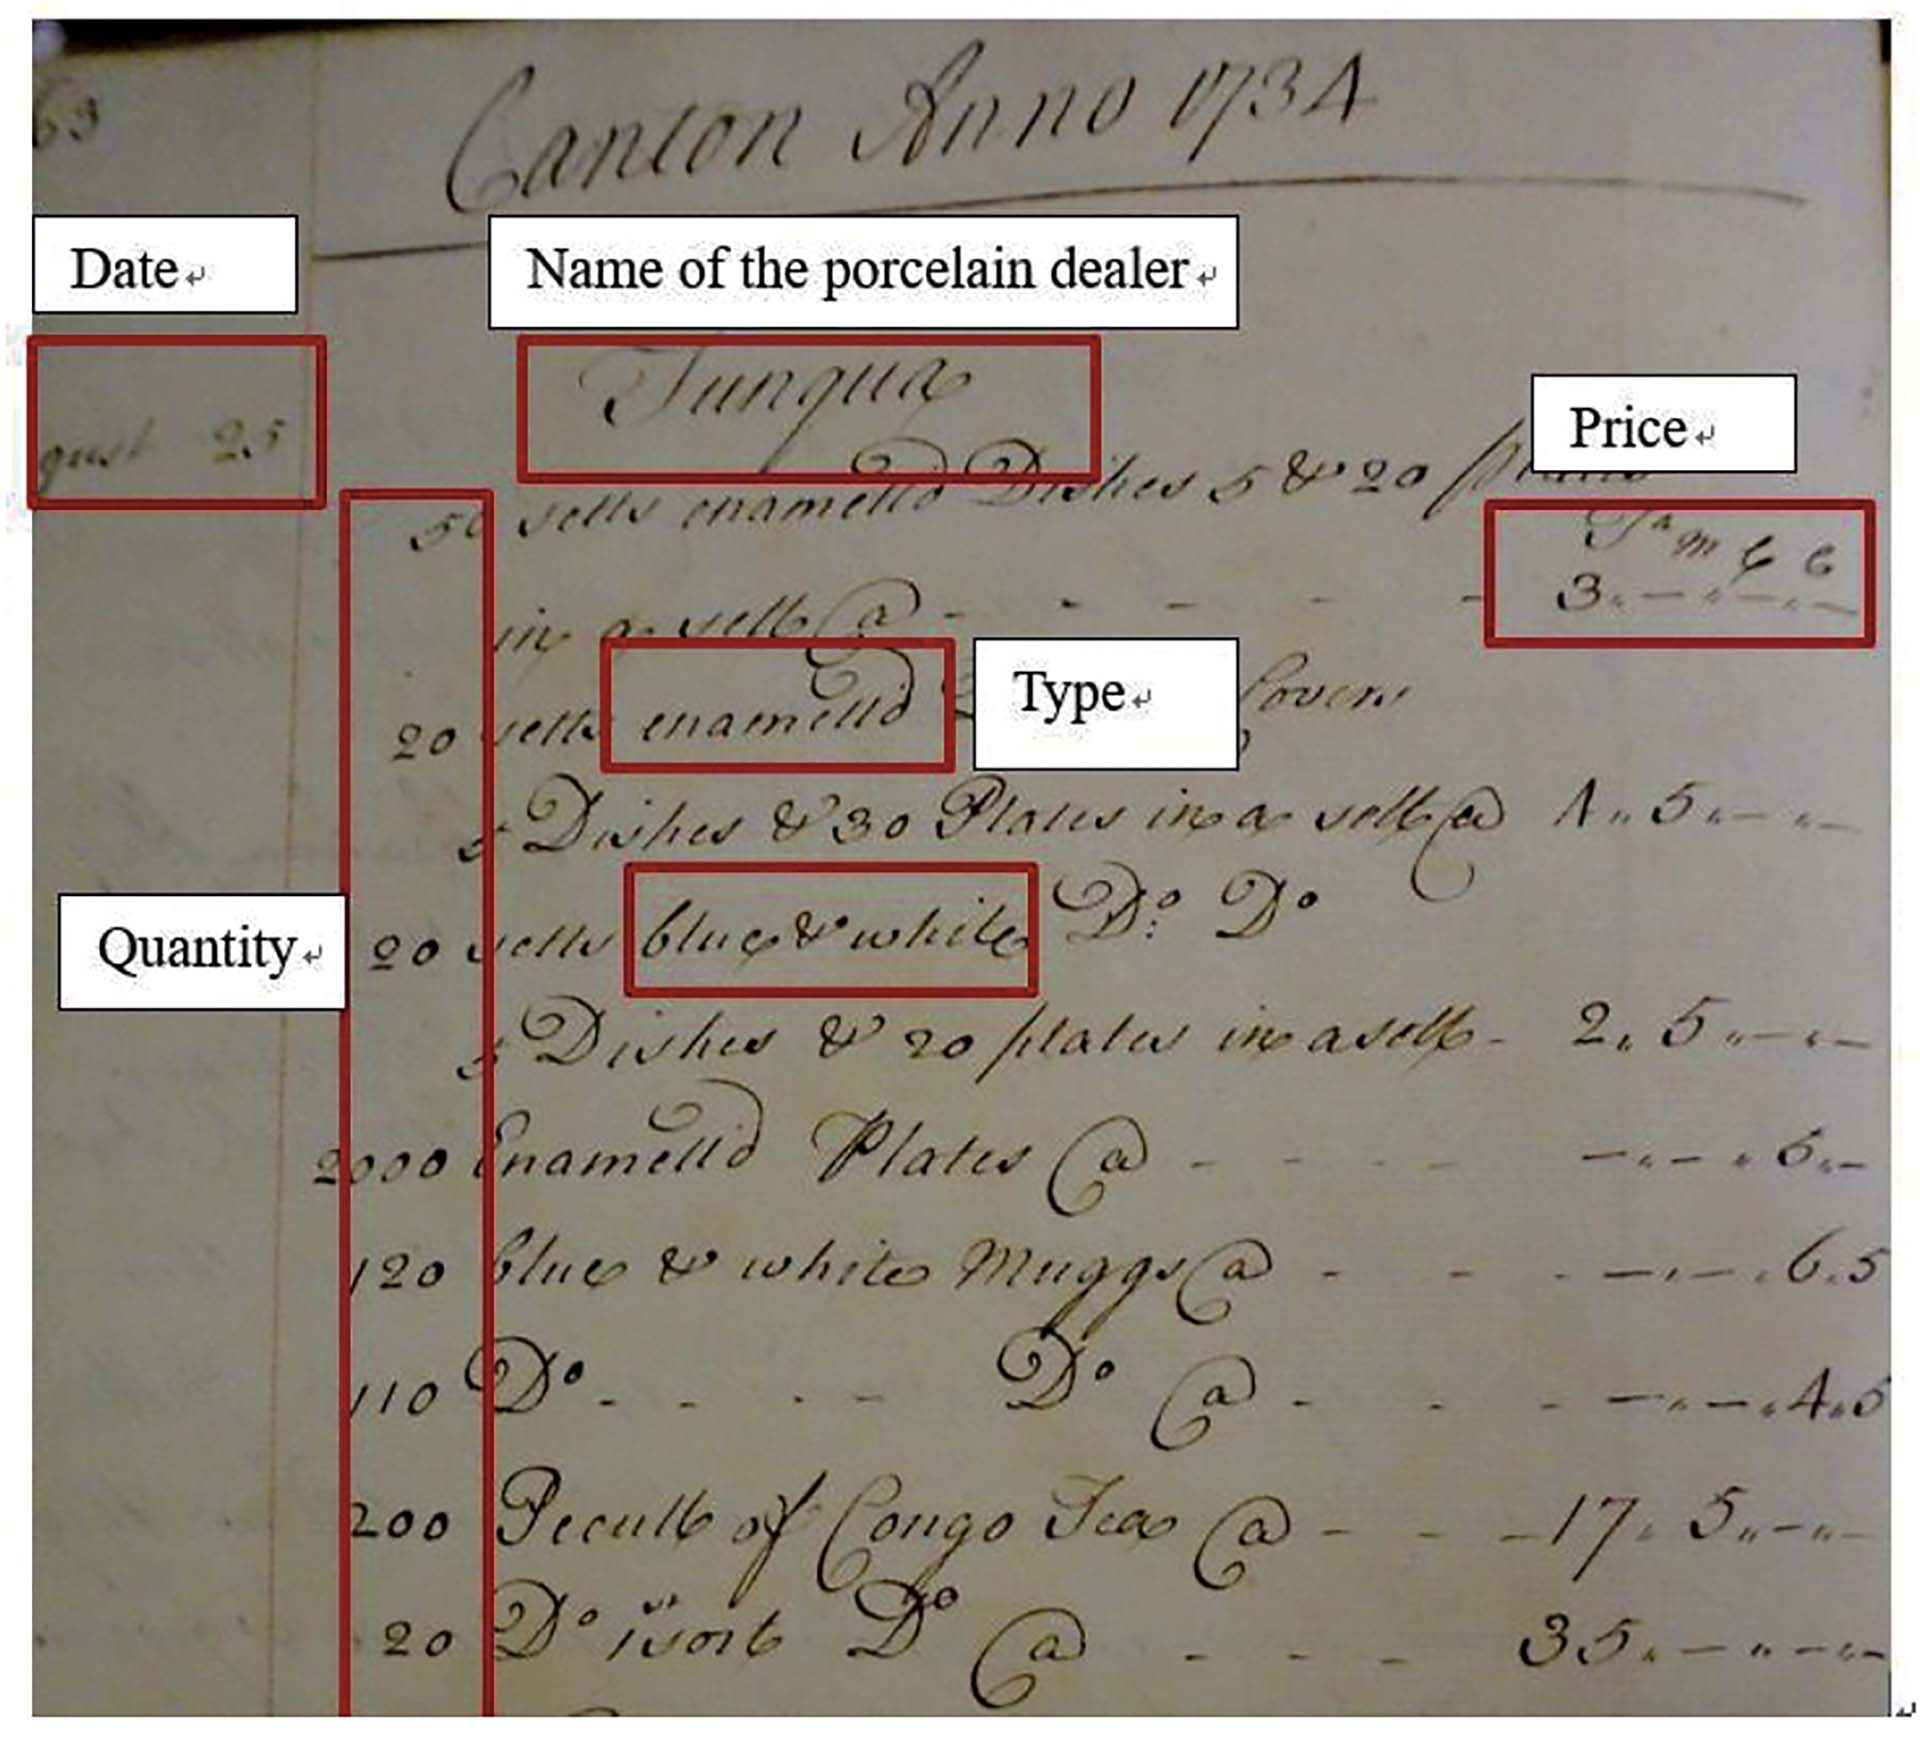 63
Canton Anno 1734
Date
Name of the porcelain dealer
gust 25
Price
50 setts enamelld Dishes 5 & 20
Ta m c c
in a sett @ - - - - - 3.. — .. — .. —
Type
20 setts enamelld Covers
5 Dishes & 30 Plates in a sett @ 1.. 5.. — .. —
Quantity
20 setts blue & white Do. Do
5 Dishes & 20 plates in a sett - 2.. 5.. — .. —
2000 Enamelld Plates @ - - - - — .. — .. 6.. —
120 blue & white Muggs @ - - - — .. — .. 6.5
110 Do - - - - Do @ - - - — .. — .. 4.. 5
200 Pecull of Congo Tea @ - - - 17. 5.. — .. —
20 Do Do @ - - - 35.. — .. — .. —